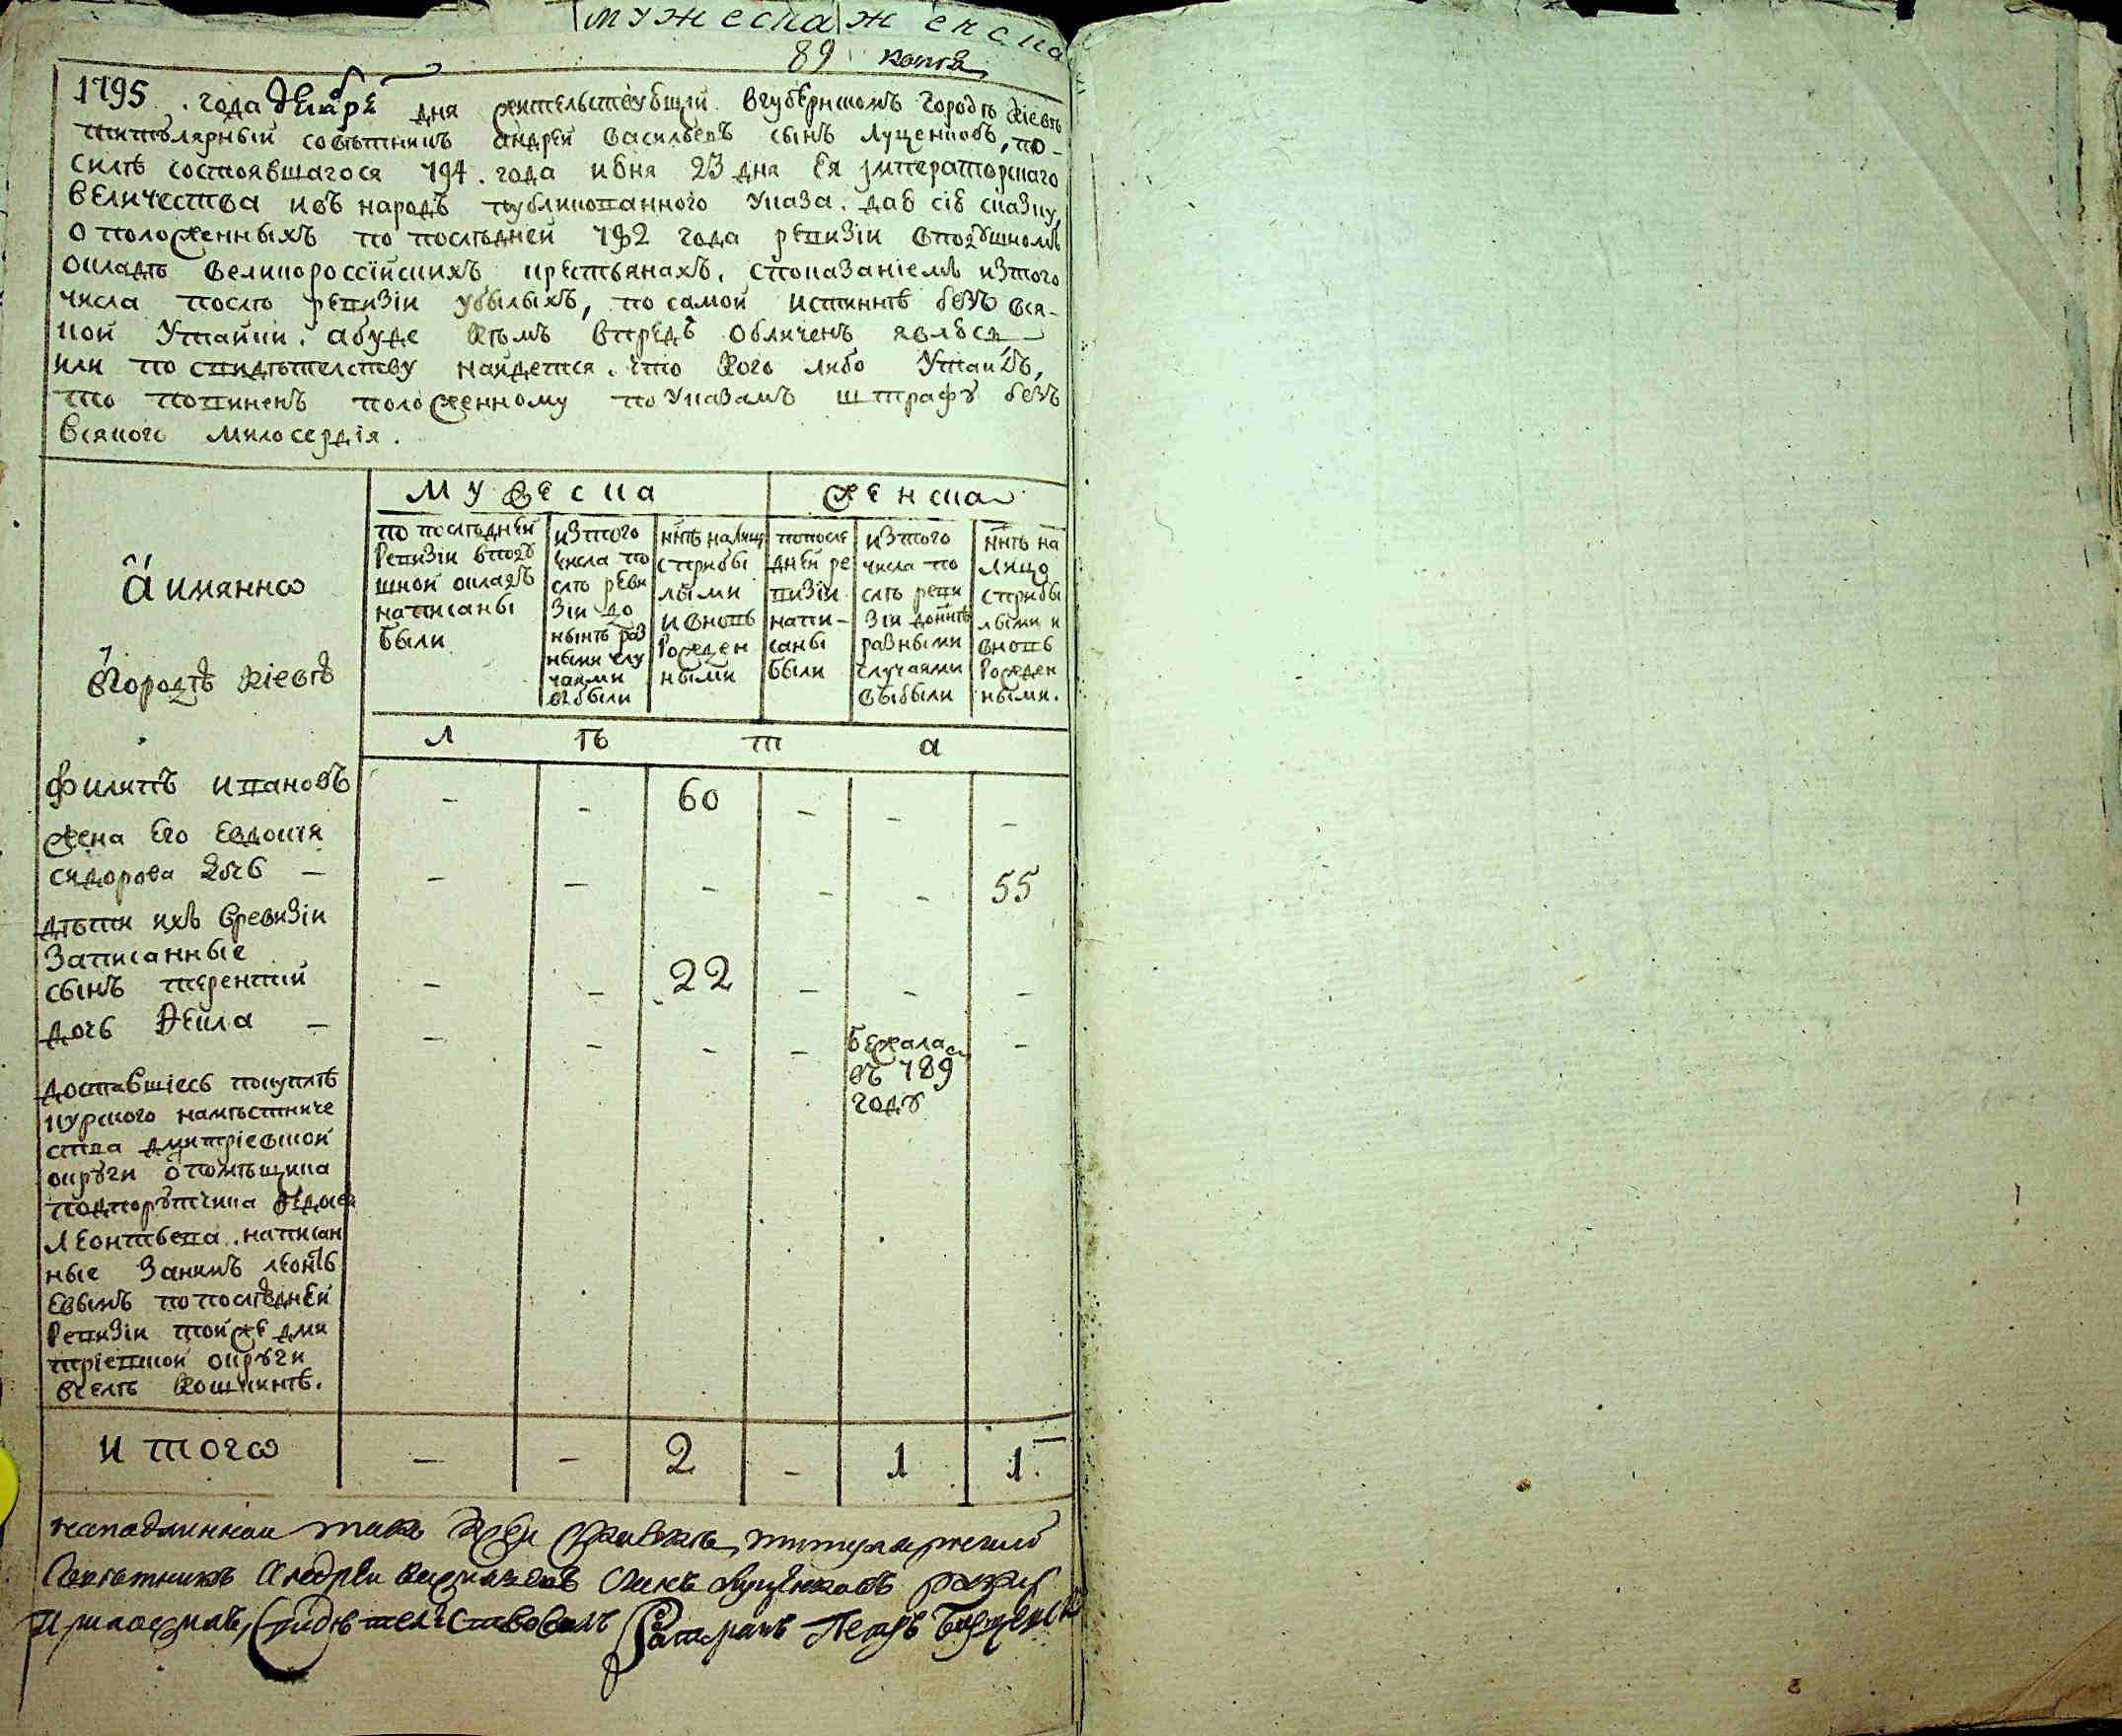 мужеска женска
89 копия
1795 . года дня жительствующий вгубернскомъ городѣ кіевѣ
титулярный совѣтникъ андрей васильевъ сынъ луценковъ, по-
силѣ состоявшагося 794 . года июня 23 дня Ея імператорскаго
величества ивъ народъ публикованного указа . даю сію сказку,
о положенныхъ по послѣдней 782 года ревизіи вподушномъ
окладѣ великороссійскихъ крестьянахъ, споказаніемъ изтого
числа послѣ ревизіи убылыхъ, по самой истиннѣ безъ вся-
кой утайки . абуде кѣмъ впредь обличенъ явлюся
или по свидѣтелству найдется . что кого либо утаилъ,
то повиненъ положенному по указамъ штрафу безъ
всякого милосердія .
мужеска женска
а имянно
вгородѣ кіевѣ
по послѣдней ревизіи вподушной окладъ написаны были
изтого числа по слѣ реви зіи до нынѣ раз ными слу чаями выбыли
ннѣ налицо сприбы лыми и вновь рожден ными
попосле дней ре визіи напи- саны были
изтого числа по слѣ реви зіи доннѣ разными случаями выбыли
ннѣ на лицо сприбы лыми и вновь рожден ными .
л ѣ т а
филипъ ивановъ - - 60 - - -
жена его евдокия
сидорова дочь - - - - - - 55
дѣти ихъ вревизіи
записанные
сынъ терентий - - 22 - - -
дочь Фекла - - - - - бежала въ 789 году -
доставшіесь покупкѣ
курского намѣстниче
ства дмитріевской
округи о помѣщика
подпорутчика
леонтьева . написан
ные занимъ леонть
евымъ по послѣдней
ревизіи тойже дми
тріевской округи
вселѣ кошкинѣ .
и того - - 2 - 1 1 .
наподлинной тако титулярный
совѣтникъ Андрей васильевъ сынъ луценковъ руку
приложилъ, свидѣтелствовалъ Ратманъ Петръ